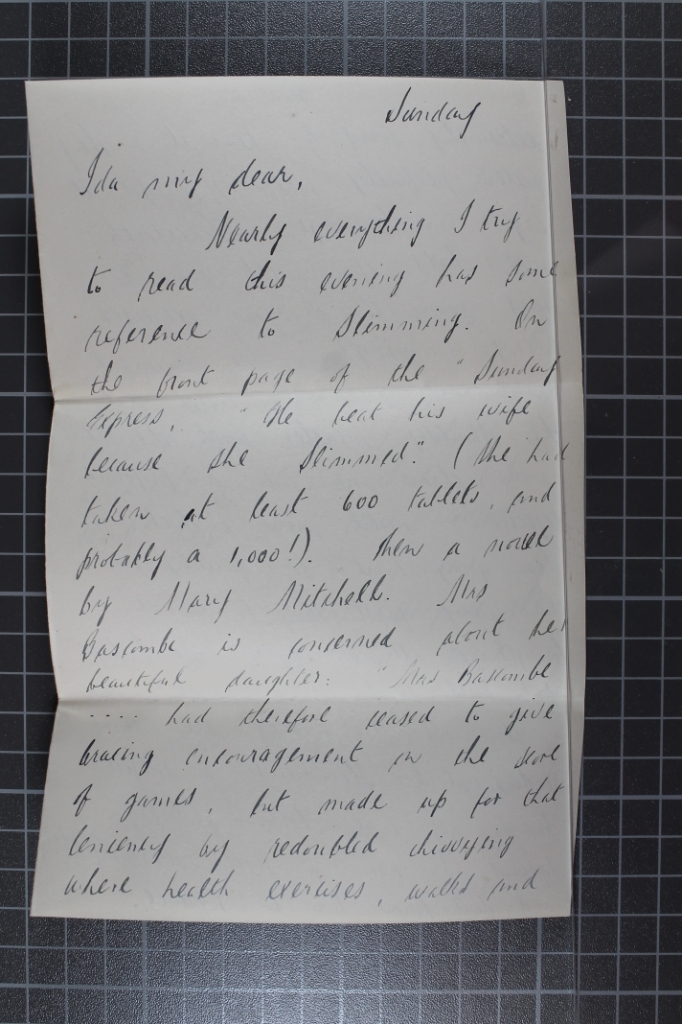 Sunday
Ida my dear,
Nearly everything I try
to read this evening has some
reference to Slimming. On
the front page of the "Sunday
Express, "He beat his wife
because she slimmed". (She had
taken at least 600 tablets, and
probably a 1,000!). Then a novel
by Mary Mitchell. Mrs
Bascombe is concerned about her
beautiful daughter: "Mrs Bascombe
.... had therefore ceased to give
bracing encouragement on the score
of games, but made up for that
leniency by redoubled chivvying
where health exercises, walks and